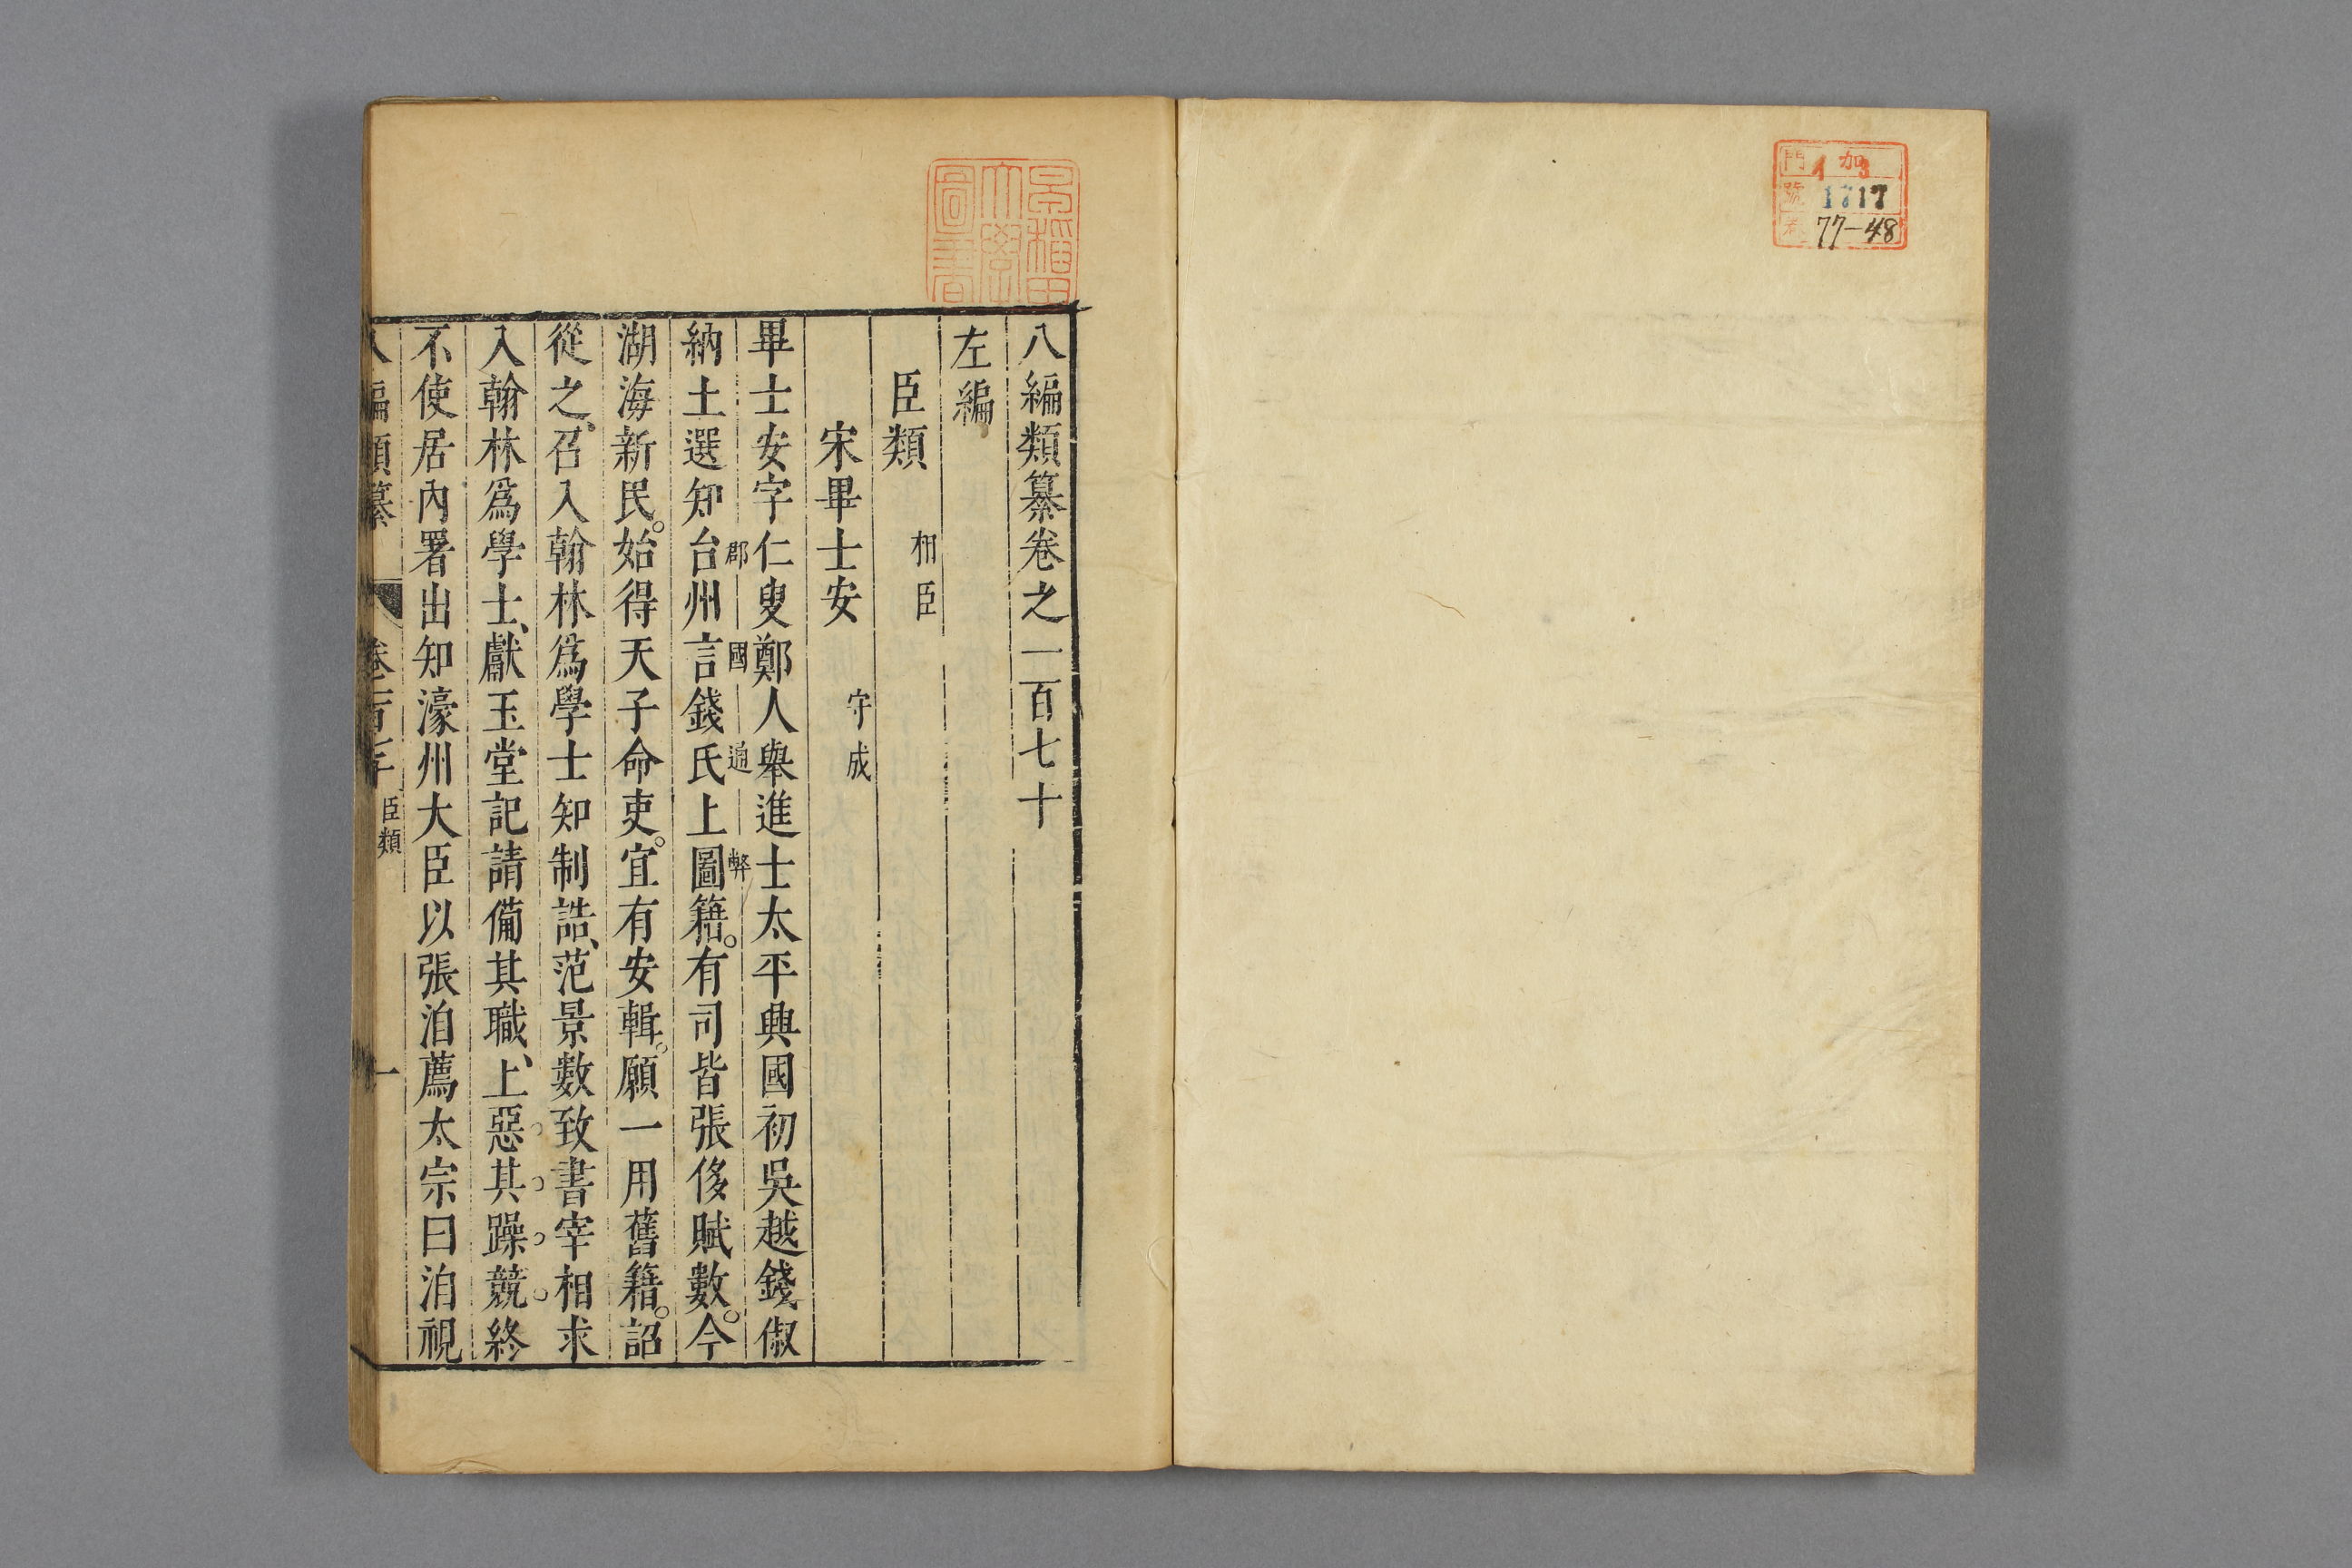 門 加 3
號 1717
77-48
早稲田
大學
圖書
八編類纂卷之一百七十
左編
臣類 相臣
宋畢士安 守成
畢士安字仁叟鄭人舉進士太平興國初吳越錢俶
郡國通弊
納土選知台州言錢氏上圖籍。有司皆張侈賦數。今
湖海新民。始得天子命吏。宜有安輯。願一用舊籍。詔
從之、召入翰林爲學士知制誥、范景數致書宰相求
入翰林爲學士、獻玉堂記請備其職、上惡其躁競終
不使居內署出知濠州大臣以張洎薦太宗曰洎視
八編類纂 卷一百七十 臣類 一